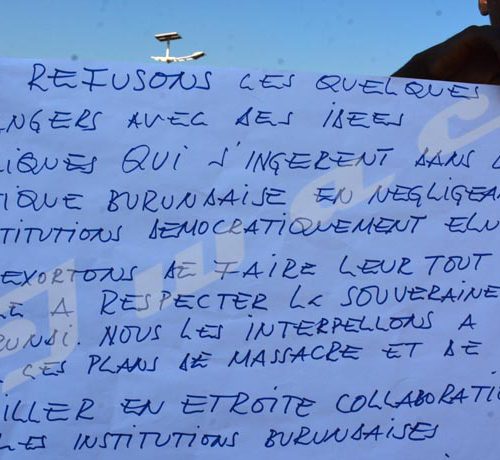 REFUSONS LES QUELQUES
NGERS AVEC DES IDEES
LIQUES QUI S'INGERENT DANS L
TIQUE BURUNDAISE EN NEGLIGEAN
TITUTIONS DEMOCRATIQUEMENT ELU
EXORTONS DE FAIRE LEUR TOUT
LE A RESPECTER LA SOUVERAINE
RUNDI. NOUS LES INTERPELLONS A
CES PLANS DE MASSACRE ET DE
ILLER EN ETROITE COLLABORATIO
LES INSTITUTIONS BURUNDAISES